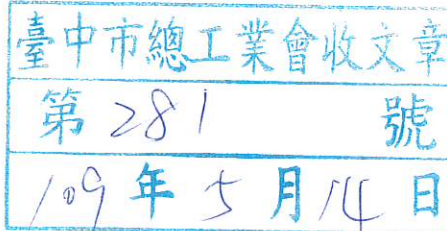 臺中市總工業會收文章
第 281 號
109 年 5 月 14 日